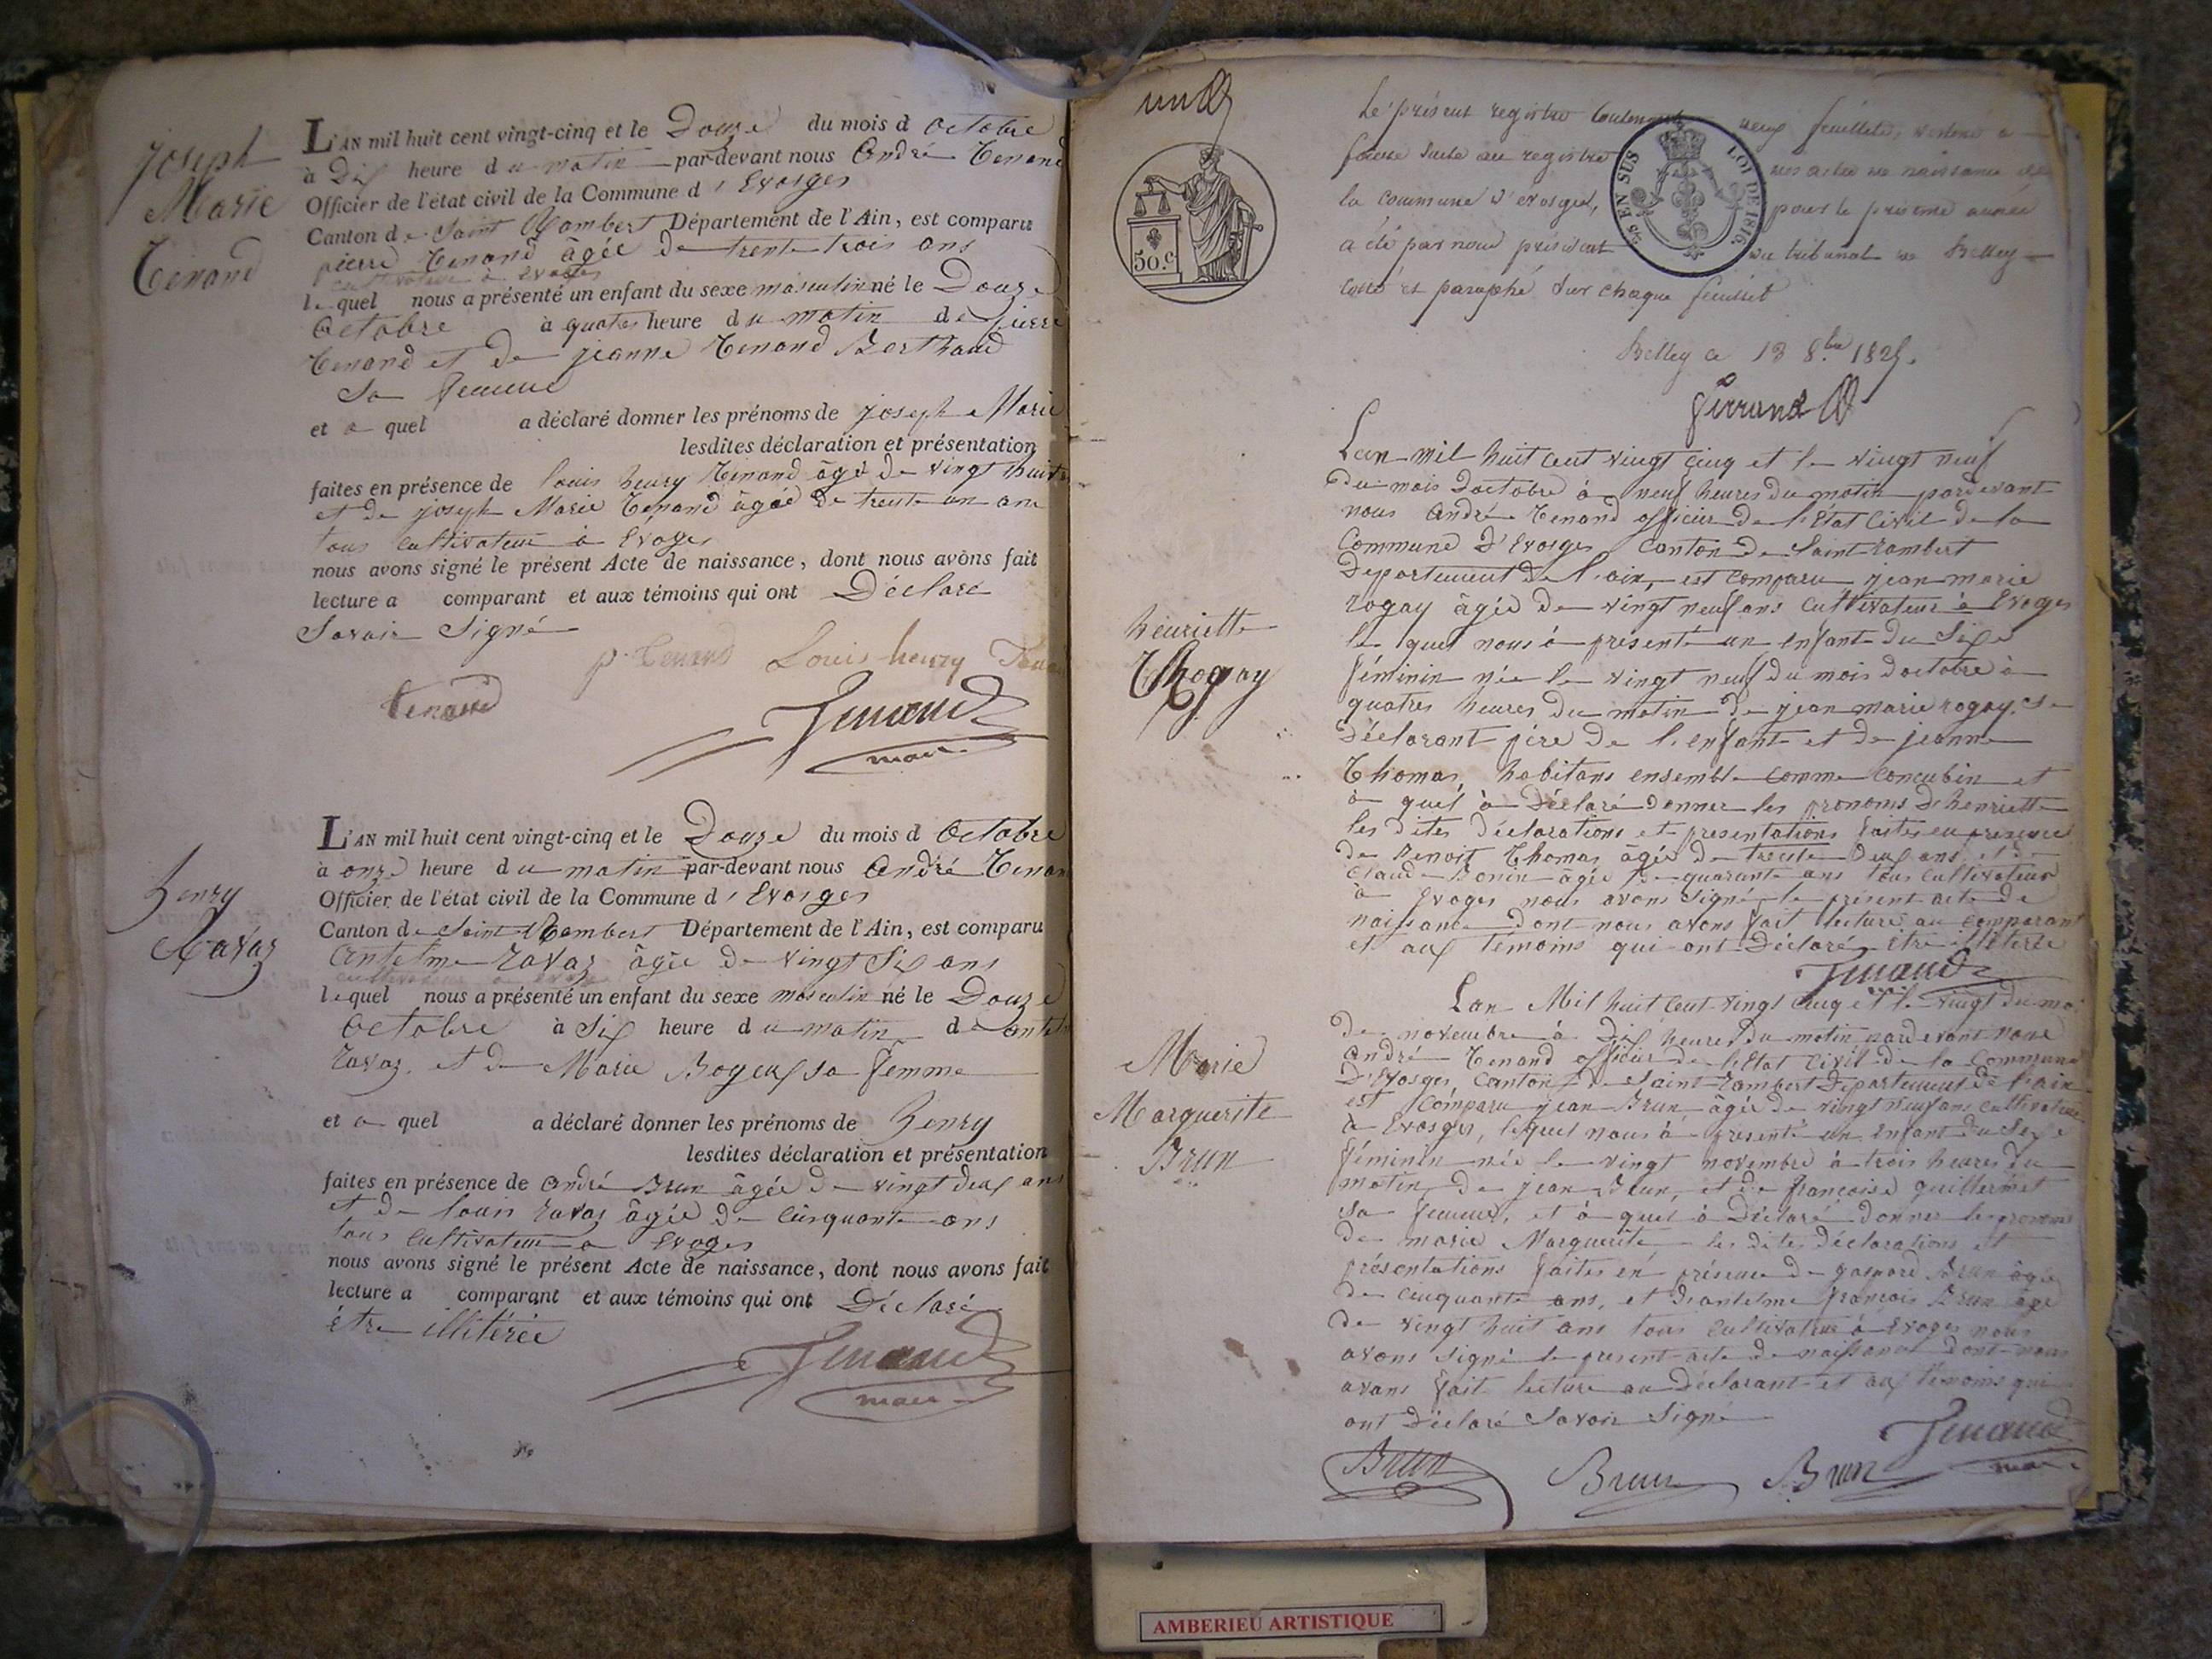 Joseph
Marie
Tenand
L'AN mil huit cent vingt-cinq et le Douze du mois d octobre
à Dix heure du matin par-devant nous André Tenand
Officier de l'état civil de la Commune d'Evosges
Canton de Saint Rambert Département de l'Ain, est comparu
pierre Tenand âgée de trente trois ans
cultivateur à Evoges
lequel nous a présenté un enfant du sexe masculin né le Douze
Octobre à quatres heure du matin de pierre
Tenand et de jeanne Tenand Berthaud
Sa femme
et a quel a déclaré donner les prénoms de joseph Marie
lesdites déclaration et présentation
faites en présence de louis henry Tenand âgé de vingt huit
et de joseph Marie Tenand âgée de trente un ans
tous cultivateur à Evoges
nous avons signé le présent Acte de naissance, dont nous avons fait
lecture a comparant et aux témoins qui ont Déclaré
Savoir Signé
p. Tenand Louis henry
Tenand
Tenand
maire
Henry
Ravaz
L'AN mil huit cent vingt-cinq et le Douze du mois d Octobre
à onze heure du matin par-devant nous André Tenan
Officier de l'état civil de la Commune d'Evosges
Canton de Saint Rambert Département de l'Ain, est comparu
Antelme ravaz âgée de vingt Six ans
cultivateur à
lequel nous a présenté un enfant du sexe masculin né le Douze
Octobre à Six heure du matin de Antel
ravaz. et de Marie Boyeux sa femme
et a quel a déclaré donner les prénoms de Henry
lesdites déclaration et présentation
faites en présence de André Brun âgée de vingt deux ans
et de louis ravaz âgée de Cinquante ans
tous cultivateur a Evoges
nous avons signé le présent Acte de naissance, dont nous avons fait
lecture a comparant et aux témoins qui ont Déclaré
être illitérée
Tenand
maire
50.c
25 EN SUS
LOI DE 1816.
Le présent registre contenant neuf feuillets, destiné a
faire suite au registre des actes de naissance de
la commune d'evosges, pour la présente année
a été par nous président du tribunal de Belley
coté et paraphé sur chaque feuillet
Belley ce 18 8.bre 1825.
Ferrand
henriette
Rogay
Lan mil huit cent vingt cinq et le vingt neuf
Du mois Doctobre à neuf heures du matin pardevant
nous André Tenand officier de l'Etat Civil de la
Commune D'Evosges Canton de Saint rambert
Departement de l'ain, est comparu jean marie
rogay âgée de vingt neuf ans Cultivateur à Evoges
le quel nous à présenté un enfant du Sixe
féminin née le vingt neuf du mois doctobre à
quatres heures du matin de jean marie rogay. le
Déclarant père de l'enfant et de jeanne
Thomas, habitans ensemble comme concubin et
à quel à Déclaré donner les pronoms De henriette
les dites Déclarations et presentations faites en presence
de Benoit Thomas âgée de trente deux ans et de
Claude Bonin âgée de quarante ans tous Cultivateur
à Evoges nous avons signé le présent acte de
naissance dont nous avons fait lecture au comparant
et aux temoins qui ont Déclaré etre illiterée
Tenand
Marie
Marguerite
Brun
Lan Mil huit cent vingt cinq et le vingt du moi
De novembre à Dix heures du matin pardevant nous
André Tenand officier de l'Etat Civil de la Commune
D'Evosges, Canton de Saint rambert Département de l'ain
est Comparu jean Brun âgée de vingt neuf ans Cultivateur
à Evosges, lequel nous à presenté un enfant du Sexe
féminin née le vingt novembre à trois heures du
matin, de jean Brun, et de françoise guillermet
sa femme, et à quel à Déclaré donner les pronoms
de marie Marguerite les dites Déclarations et
présentations faites en présence de gaspard Brun âgée
de cinquante ans, et Deantelme françois Brun âgé
de vingt huit ans tous Cultivateur à Evoges nous
avons signé le present acte de naissance dont nous
avons fait lecture au Déclarant et aux témoins qui
ont Déclaré Savoir Signé
Tenand
maire
Brun Brun Brun
AMBERIEU ARTISTIQUE